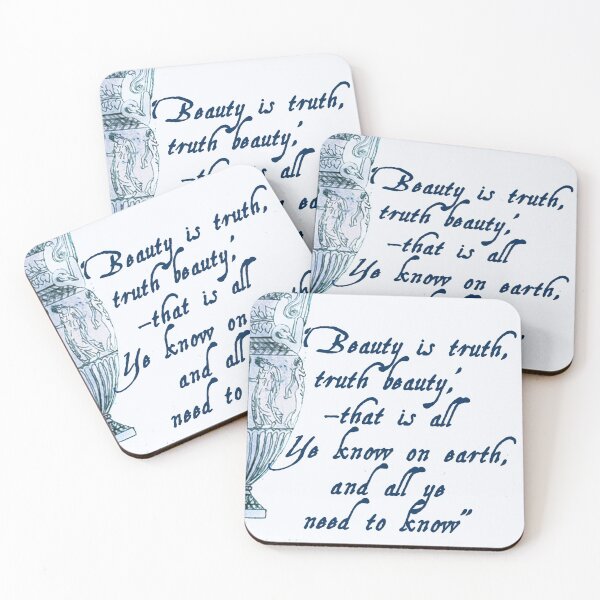 "Beauty is truth,
truth beauty,'
–that is all
"Beauty is truth,
truth beauty,'
–that is all
Ye know on earth,
"Beauty is truth,
truth beauty,'
–that is all
Ye know on
and all
need to
"Beauty is truth,
truth beauty,'
–that is all
Ye know on earth,
and all ye
need to know"